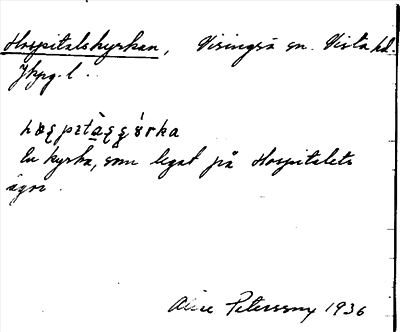 Hospitalskyrkan, Visingsö sn. Vista hd.
Jkpg. l.
En kyrka, som legat på Hospitalets
ägor.
Alice Petersson 1936